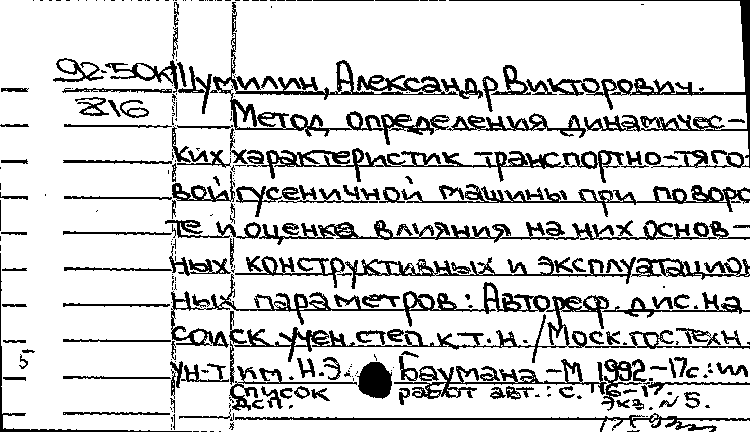 92-50к Шумилин, Александр Викторович.
816 Метод определения динамичес-
ких характеристик транспортно-тяго
вой гусеничной машины при поворо
те и оценка влияния на них основ-
ных конструктивных и эксплуатацион
ных параметров: Автореф. дис. на
соиск. учен. степ. к.т.н. / Моск. гос. техн.
5 ун-т им. Н.Э. Баумана - М 1992 - 17с.: ил
Список работ авт.: с. 16-17.
ДСП. Экз. N 5.